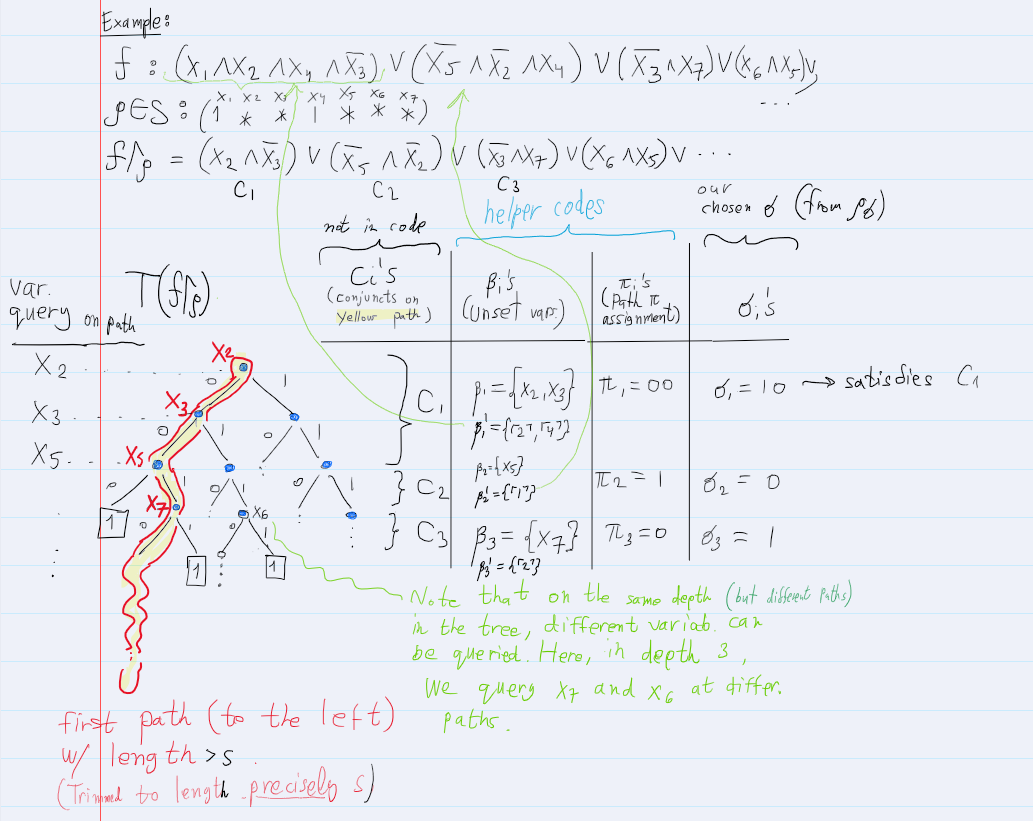 Example:
f : (x₁ ∧ x₂ ∧ x₄ ∧ x̅₃) ∨ (x̅₅ ∧ x̅₂ ∧ x₄) ∨ (x̅₃ ∧ x₇) ∨ (x₆ ∧ x₅) ∨, ...
x₁ x₂ x₃ x₄ x₅ x₆ x₇
ρ∈S : (1 * * 1 * * *)
f↾ρ = (x₂ ∧ x̅₃) ∨ (x̅₅ ∧ x̅₂) ∨ (x̅₃ ∧ x₇) ∨ (x₆ ∧ x₅) ∨ ...
C₁ C₂ C₃
not in code
helper codes
our
chosen σ (from ρσ)
var.
query on path
T(f↾ρ)
Ci's
(conjuncts on
Yellow path)
βi's
(Unset vars.)
πi's
(Path π
assignment)
σi's
X₂ . . . . . . . . .
X₃ . . . . . .
X₅ . . . .
.
.
.
X₂
0 1
X₃
0 1 0 1
X₅
0 1 0 1 0 1
1
X₇
X₆
0 1 0 1
1 1
C₁
β₁ = {x₂, x₃}
β₁' = {⌜2⌝, ⌜4⌝}
π₁ = 00
σ₁ = 10 → satisfies C₁
C₂
β₂ = {x₅}
β₂' = {⌜1⌝}
π₂ = 1
σ₂ = 0
C₃
β₃ = {x₇}
β₃' = {⌜2⌝}
π₃ = 0
σ₃ = 1
Note that on the same depth (but different paths)
in the tree, different variab. can
be queried. Here, in depth 3,
We query x₇ and x₆ at differ.
paths.
first path (to the left)
w/ length >s.
(Trimmed to length precisely s)